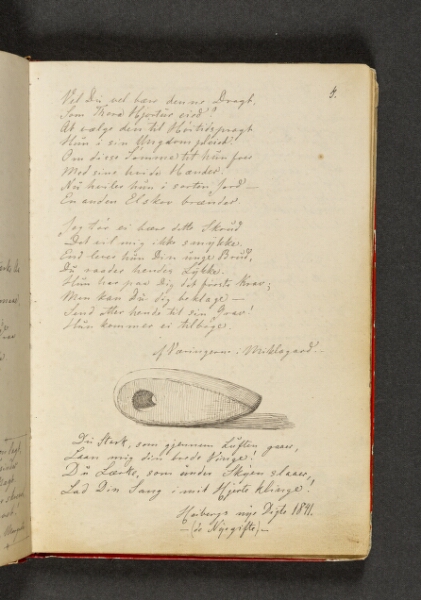 5.
Vil Du vel bære denne Dragt,
Som Thora Hjortur eied?
At vælge den til Høitidspragt
Hun i sin Ungdom pleied.
Om disse Lemmer tit hun foer
Med sine hvide Hænder.
Nu hviler hun i sorten Jord —
En anden Elskov brænder.
Jeg tør ei bære dette Skrud
Det vil mig ikke smykke.
End lever hun Din unge Brud,
Du raader hendes Lykke.
Hun har paa Dig det første Krav;
Men kan Du Dig beklage —
Send efter hende til sin Grav!
Hun kommer ei tilbage.
af Væringerne i Miklagard —
Du Stork, som gjennem Luften farer,
Laan mig din brede Vinge!
Du Lærke, som under Skyen slaaer,
Lad Din Sang i mit Hjerte klinge!
Heibergs nye Digte 1841.
— (de Nygifte) —